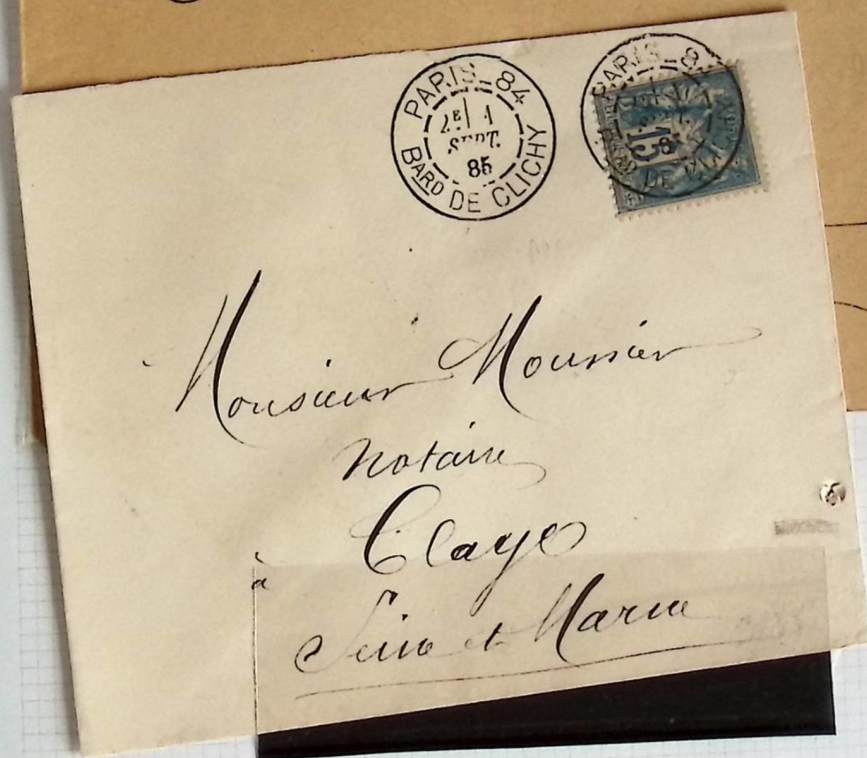 PARIS_84
2E 1
SEPT.
85
BARD DE CLICHY
PARIS_8
15
DE
Monsieur Mousnier
notaire
à Claye
Seine et Marne